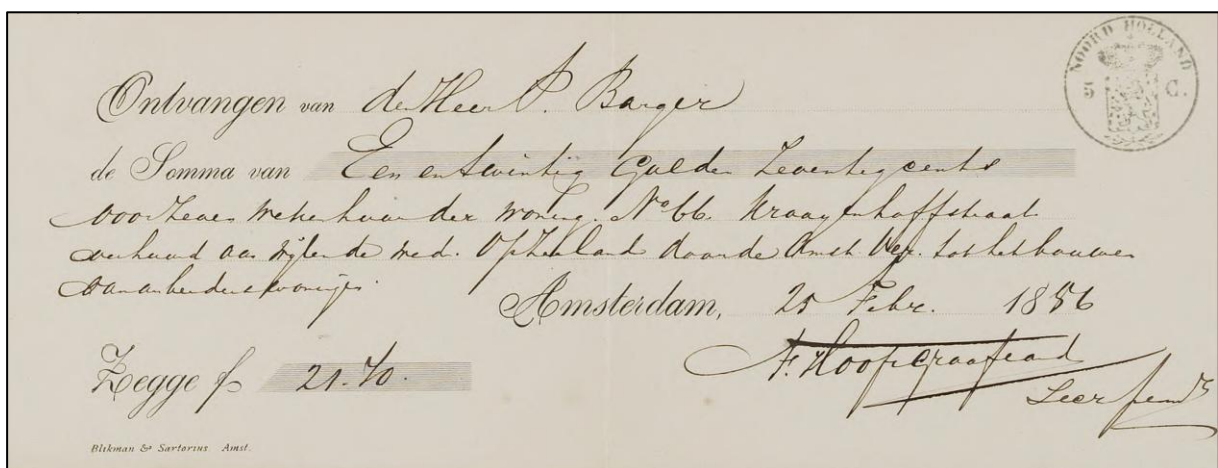 NOORD HOLLAND
5 C.
Ontvangen van den Heer P. Barger
de Somma van Een en twintig Gulden Zeventig cents
voor zeven weken huur der woning No 66 Kraayenhoffstraat
verhuurd aan wijlen de wed. Opzeeland door de Amst. Ver. tot het bouwen
van arbeiderswoningen.
Amsterdam, 25 Febr. 1886
Zegge f 21.70.
F. Hoop Graafland
Secr
Blikman & Sartorius Amst.